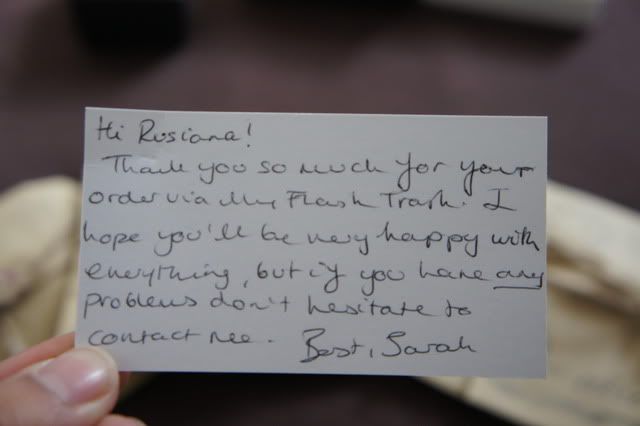 Hi Rusiana!
Thank you so much for your
order via My Flash Trash. I
hope you'll be very happy with
everything, but if you have any
problems don't hesitate to
contact me. Best, Sarah